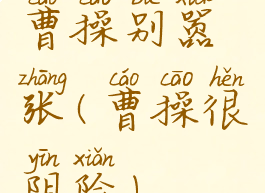 cáo cāo bié xiāo
曹操别嚣
zhāng cáo cāo hěn
张(曹操很
yīn xiǎn
阴险)